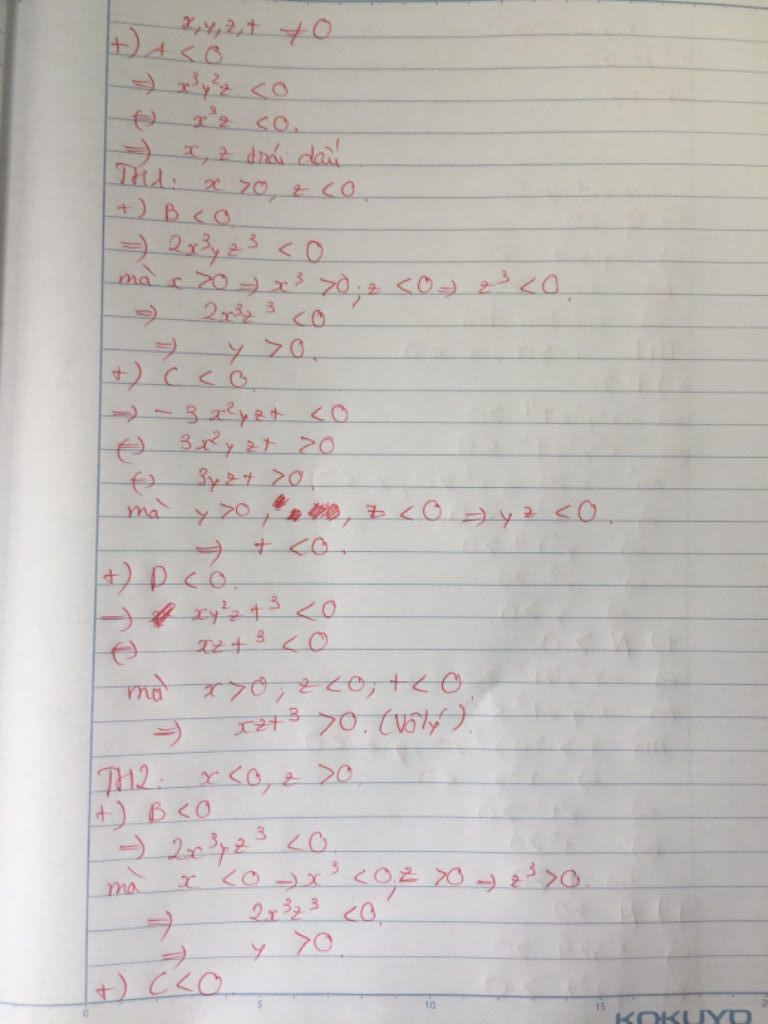 x, y, z, t ≠ 0
+) A < 0
=> x³y²z < 0
<=> x³z < 0.
=> x, z trái dấu
TH1: x > 0, z < 0.
+) B < 0
=> 2x³yz³ < 0
mà x > 0 => x³ > 0; z < 0 => z³ < 0.
=> 2x³z³ < 0
=> y > 0.
+) C < 0
=> - 3x²yzt < 0
<=> 3x²yzt > 0
<=> 3yzt > 0.
mà y > 0, , z < 0 => yz < 0.
=> t < 0.
+) D < 0.
=> xy²zt³ < 0
<=> xzt³ < 0
mà x > 0; z < 0; t < 0
=> xzt³ > 0. (Vô lý).
TH2: x < 0, z > 0
+) B < 0
=> 2x³yz³ < 0.
mà x < 0 => x³ < 0, z > 0 => z³ > 0.
=> 2x³z³ < 0,
=> y > 0.
+) C < 0
0 5 10 15
KOKUYO